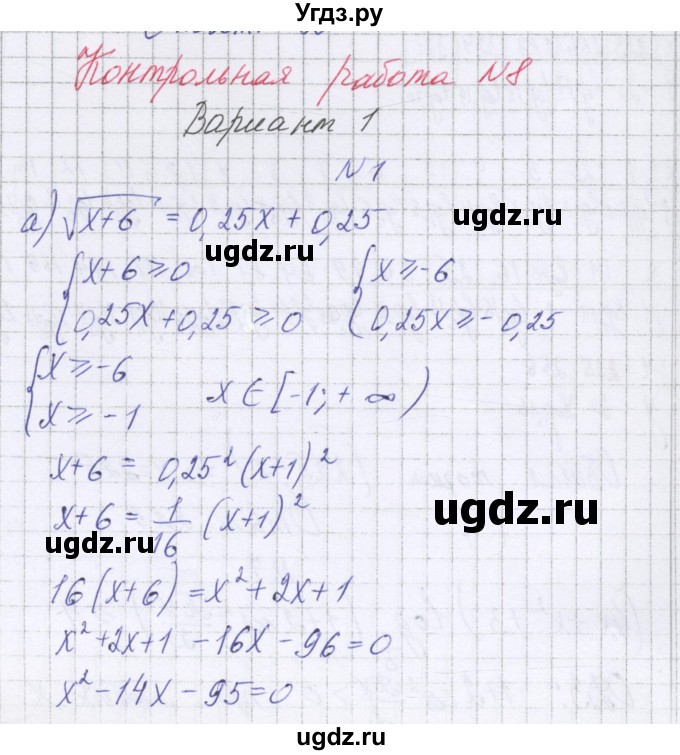 Угдз.ру
Контрольная работа N8
Вариант 1
N1
а) √(x+6) = 0,25x + 0,25
ugdz.ru
{ x+6 ≥ 0 { x ≥ -6
{ 0,25x + 0,25 ≥ 0 { 0,25x ≥ -0,25
{ x ≥ -6
{ x ≥ -1 x ∈ [-1; +∞)
x+6 = 0,25² (x+1)²
x+6 = 1/16 (x+1)² ugdz.ru
ugdz.ru
16(x+6) = x² + 2x + 1
x² + 2x + 1 - 16x - 96 = 0
x² - 14x - 95 = 0
ugdz.ru ugdz.ru